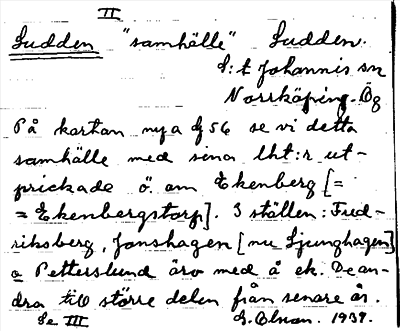 II
Sudden "samhälle" Sudden.
S:t Johannis sn
Norrköping. Ög
På kartan nya g 56 se vi detta
samhälle med sina lht:r ut-
prickade ö. om Ekenberg [=
= Ekenbergstorp]. 3 ställen: Fred-
riksberg, Jonshagen [nu Ljunghagen]
o Petterslund äro med å ek. De an-
dra till större delen från senare år.
Se III G. Olsson. 1937.